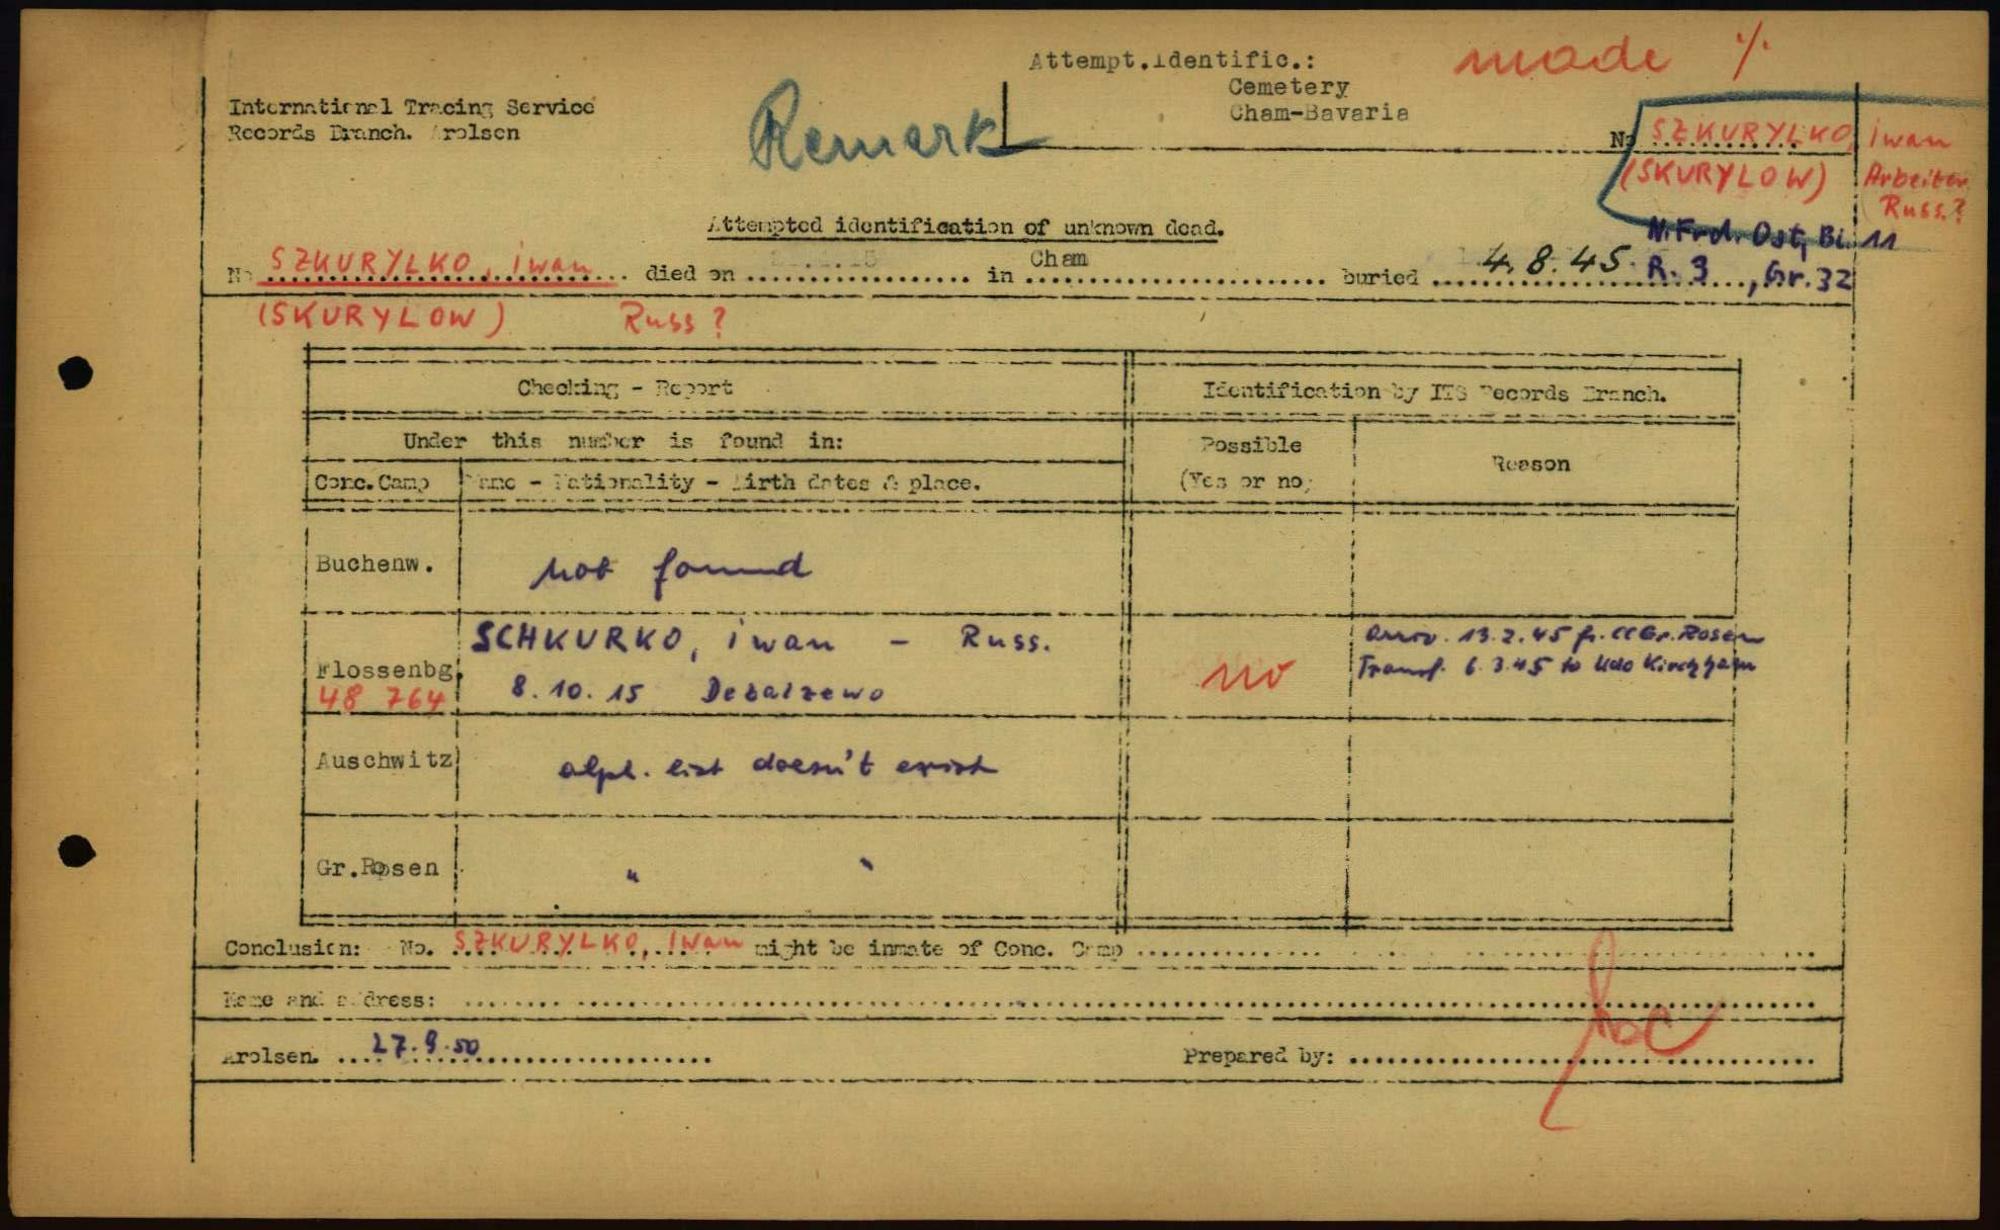 Attempt.Identific.: made %
Cemetery
Cham-Bavaria
International Tracing Service
Records Branch. Arolsen
Remark
No SZKURYLKO, iwan
(SKURYLOW) Arbeiter
Russ.?
Attempted identification of unknown dead.
N.Frd. Ost, Bl. 11
No SZKURYLKO, iwan died on in Cham buried 4.8.45. R. 3, Gr. 32
(SKURYLOW) Russ?
Checking - Report Identification by ITS Records Branch.
Under this number is found in: Possible (Yes or no) Reason
Conc.Camp Name - Nationality - Birth dates & place.
Buchenw. not found
Flossenbg. SCHKURKO, iwan - Russ. no arriv. 13.2.45 fr. CC Gr. Rosen
48 764 8.10.15 Debalzewo Transf. 6.3.45 to Kdo
Auschwitz alph. list doesn't exist
Gr.Rosen " "
Conclusion: No. SZKURYLKO, iwan might be inmate of Conc. Camp
Name and address:
Arolsen. 27.9.50 Prepared by: